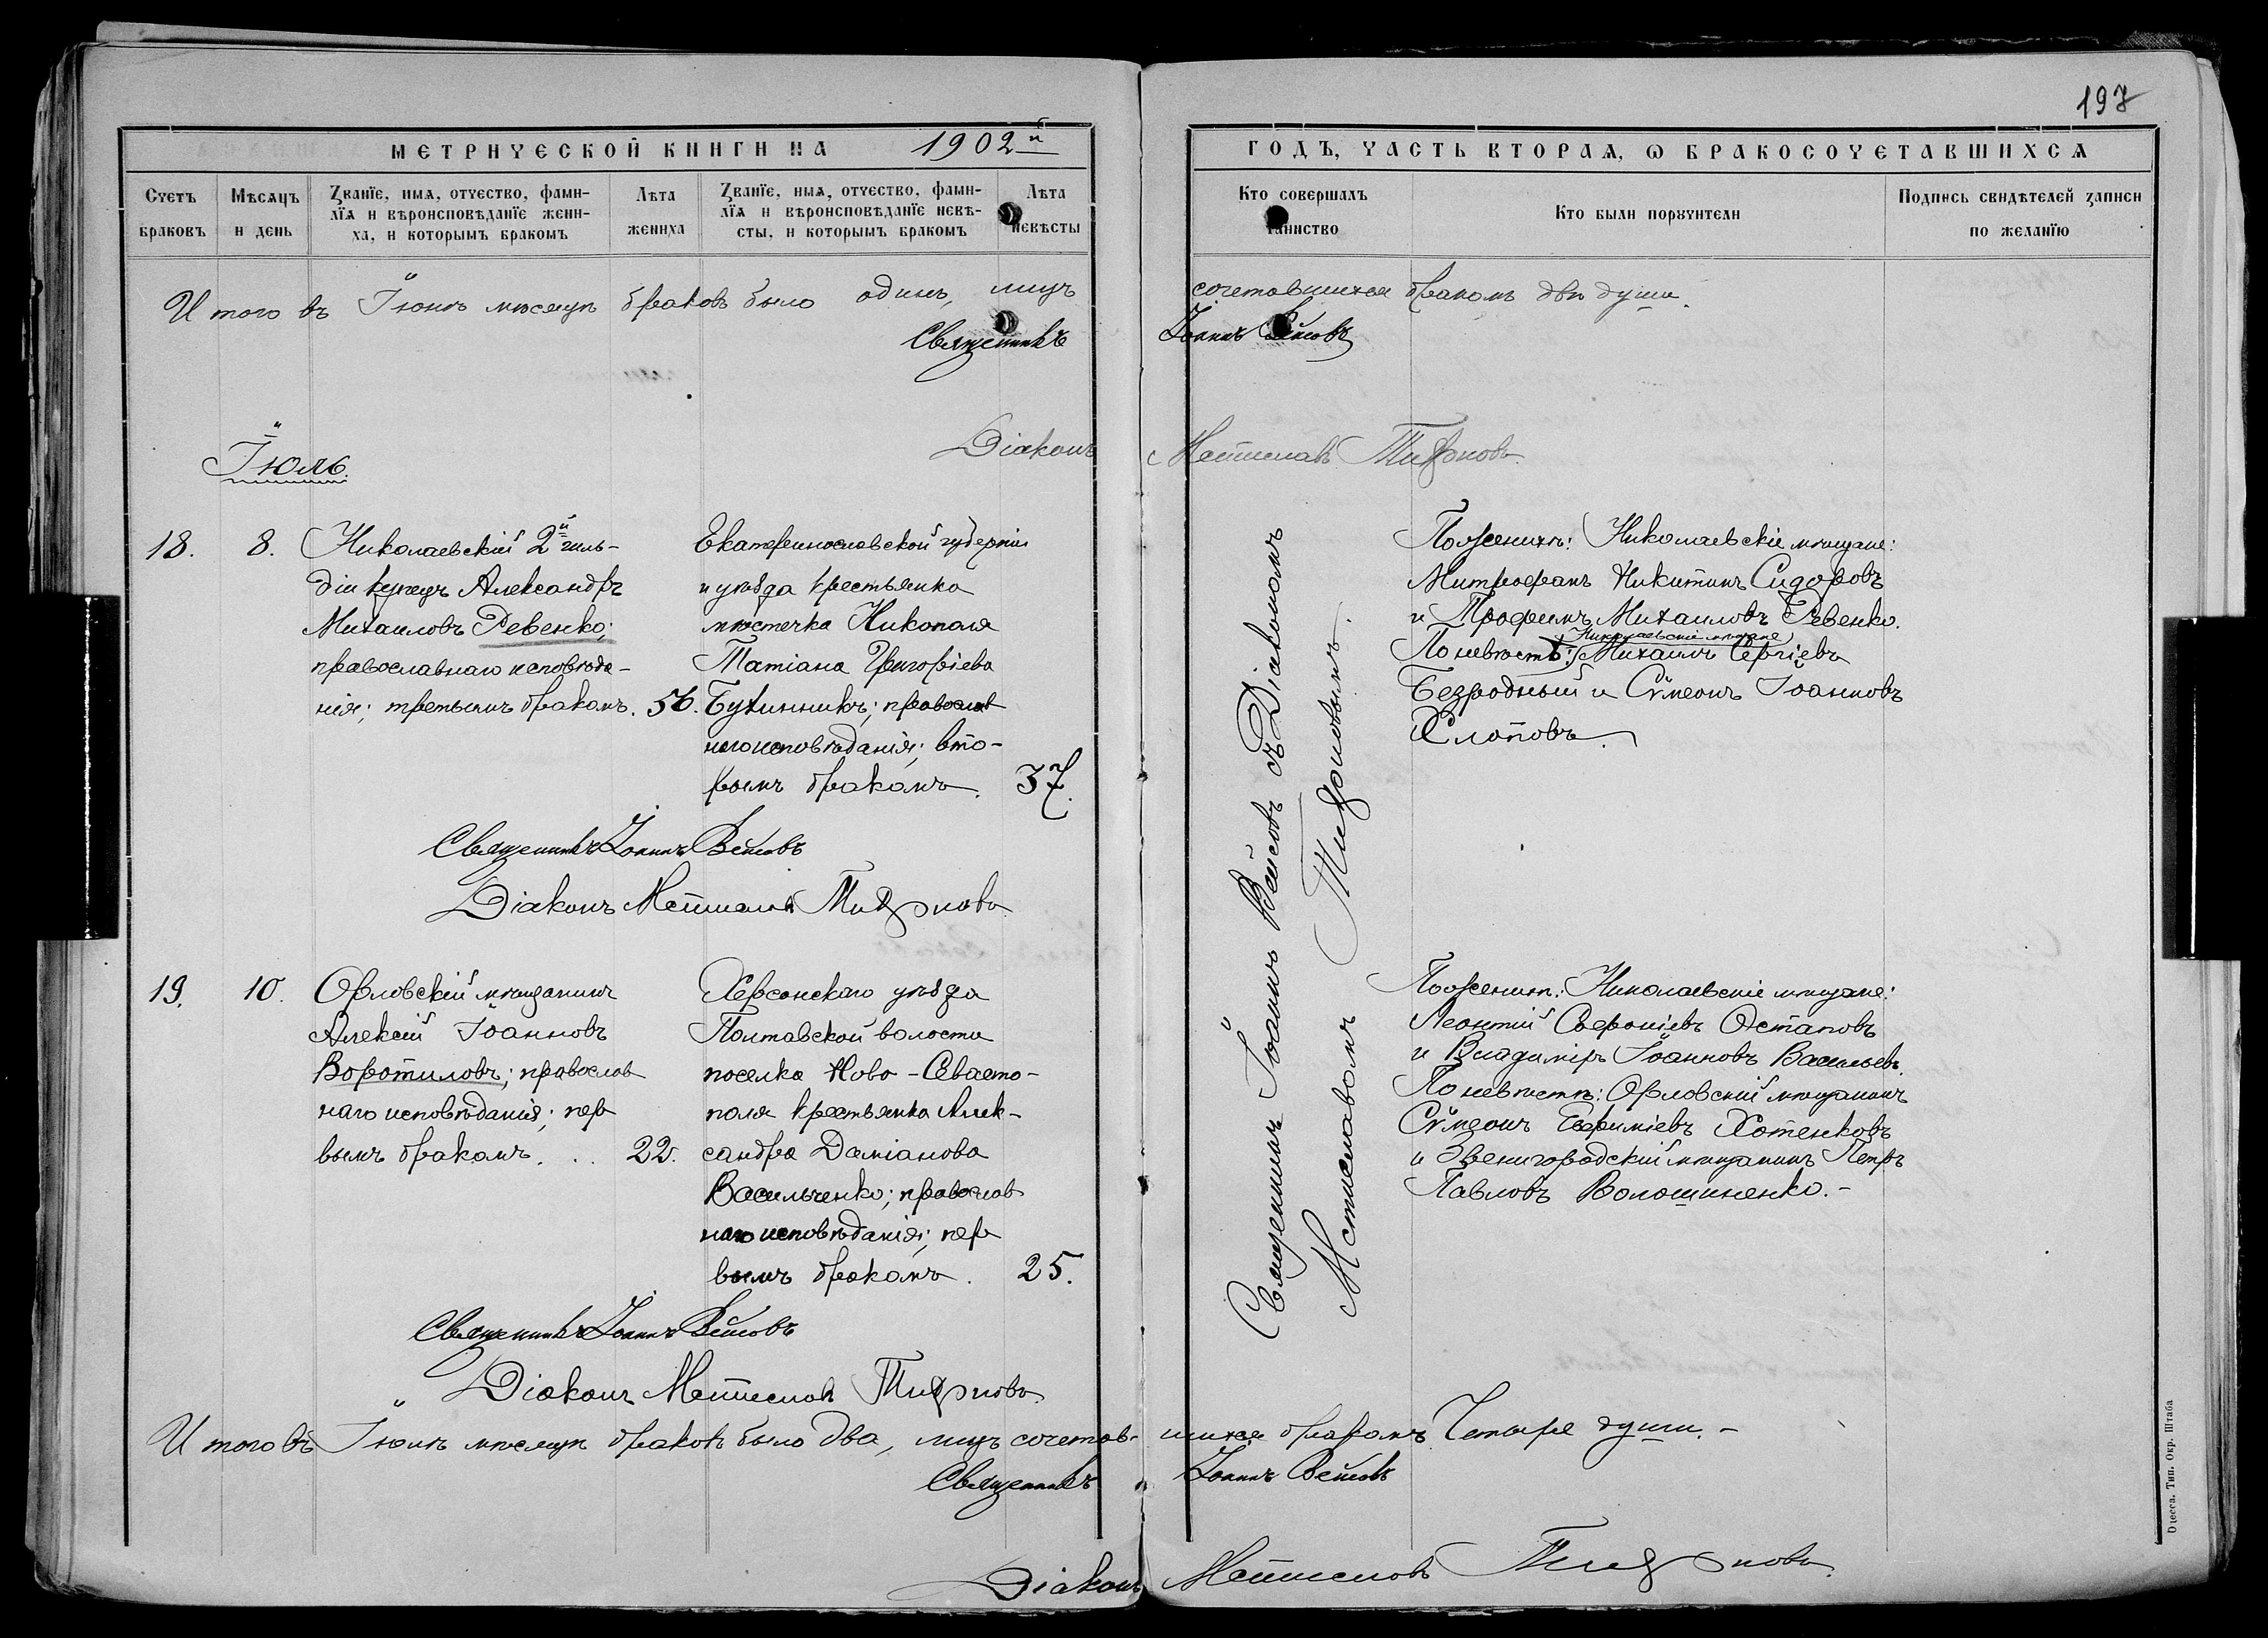 197
МЕТРИЧЕСКОЙ КНИГИ НА 1902й
ГОДЪ, ЧАСТЬ ВТОРАЯ, Ѡ БРАКОСОЧЕТАВШИХСЯ
Счетъ браковъ
Мѣсяцъ и день
Званїе, имя, отчество, фами-
лїя и вѣроисповѣданїе жени-
ха, и которымъ бракомъ
Лѣта жениха
Званїе, имя, отчество, фами-
лїя и вѣроисповѣданїе невѣ-
сты, и которымъ бракомъ
Лѣта невѣсты
Кто совершалъ таинство
Кто были поручители
Подпись свидѣтелей записи по желанїю
Итого въ Іюнѣ мѣсяцѣ браковъ было одинъ, лицъ сочетавшихся бракомъ двѣ души.
Священникъ Іоаннъ
Діаконъ Мстиславъ
Іюль.
18. 8.
Николаевскій 2й гиль-
діи купецъ Александръ
Михаиловъ Ревенко;
православнаго исповѣда-
нія; третьимъ бракомъ. 56.
Екатеринославской губерніи
и уѣзда крестьянка
мѣстечка Никополя
Татіана Григоріева
православ
наго исповѣданія; вто-
рымъ бракомъ. 37.
Священникъ Іоаннъ
Діаконъ Мстиславъ
Священникъ Іоаннъ съ Діакономъ
Мстиславомъ
По женихѣ: Николаевскіе мѣщане:
Митрофанъ Никитинъ Сидоровъ
и Трофимъ Михаиловъ Ревенко.
Николаевскіе мѣщане
По невѣстѣ: Михаилъ Сергіевъ
Безродный и Сѵмеонъ Іоанновъ
Хлоповъ.
19. 10.
Орловскій мѣщанинъ
Алексій Іоанновъ
Воротиловъ; православ
наго исповѣданія; пер
вымъ бракомъ. . . 22.
Херсонскаго уѣзда
Полтавской волости
поселка Ново-Севасто-
поля крестьянка Алек-
сандра Даміанова
Васильченко; православ
наго исповѣданія; пер
вымъ бракомъ. 25.
Священникъ Іоаннъ
Діаконъ Мстиславъ
По женихѣ: Николаевскіе мѣщане:
Леонтій Софроніевъ Остаповъ
и Владиміръ Іоанновъ Васильевъ.
По невѣстѣ: Орловскій мѣщанинъ
Сѵмеонъ Евфиміевъ Хотенковъ
и Звенигородскій мѣщанинъ Петръ
Павловъ Волошиненко.-
Итого въ Іюлѣ мѣсяцѣ браковъ было два, лицъ сочетав- шихся бракомъ четыре души.-
Священникъ Іоаннъ
Діаконъ Мстиславъ
Одесса. Тип. Окр. Штаба